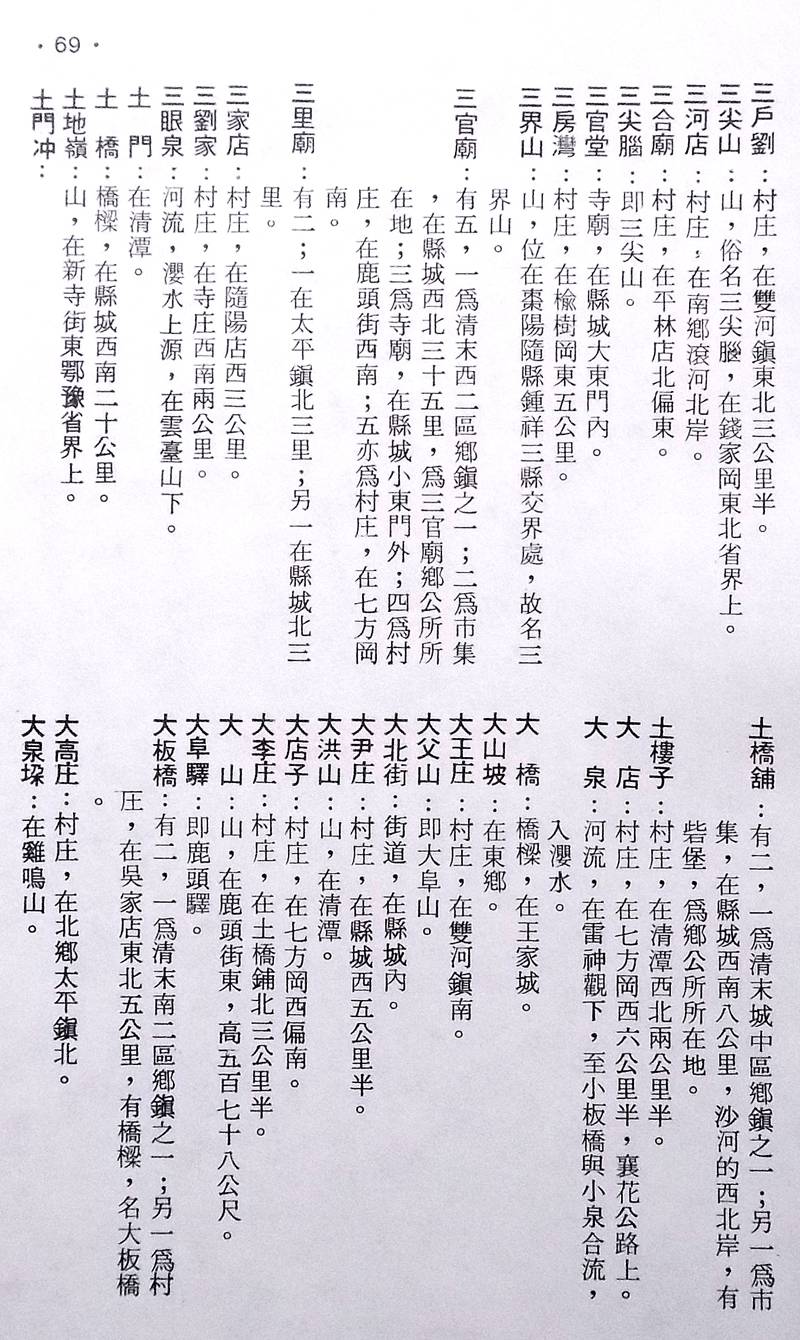 ·69·
三戶劉：村庄，在雙河鎭東北三公里半。
三尖山：山，俗名三尖腦，在錢家岡東北省界上。
三河店：村庄，在南鄉滾河北岸。
三合廟：村庄，在平林店北偏東。
三尖腦：即三尖山。
三官堂：寺廟，在縣城大東門內。
三房灣：村庄，在楡樹岡東五公里。
三界山：山，位在棗陽隨縣鍾祥三縣交界處，故名三
界山。
三官廟：有五，一爲清末西二區鄕鎭之一；二爲市集
，在縣城西北三十五里，爲三官廟鄕公所所
在地；三爲寺廟，在縣城小東門外；四爲村
庄，在鹿頭街西南；五亦爲村庄，在七方岡
南。
三里廟：有二；一在太平鎭北三里；另一在縣城北三
里。
三家店：村庄，在隨陽店西三公里。
三劉家：村庄，在寺庄西南兩公里。
三眼泉：河流，瀴水上源，在雲臺山下。
土　門：在清潭。
土　橋：橋樑，在縣城西南二十公里。
土地嶺：山，在新寺街東鄂豫省界上。
土門冲：
土橋舖：有二，一爲清末城中區鄕鎭之一；另一爲市
集，在縣城西南八公里，沙河的西北岸，有
砦堡，爲鄕公所所在地。
土樓子：村庄，在清潭西北兩公里半。
大　店：村庄，在七方岡西六公里半，襄花公路上。
大　泉：河流，在雷神觀下，至小板橋與小泉合流，
入瀴水。
大　橋：橋樑，在王家城。
大山坡：在東鄉。
大王庄：村庄，在雙河鎭南。
大父山：即大阜山。
大北街：街道，在縣城內。
大尹庄：村庄，在縣城西五公里半。
大洪山：山，在清潭。
大店子：村庄，在七方岡西偏南。
大李庄：村庄，在土橋鋪北三公里半。
大　山：山，在鹿頭街東，高五百七十八公尺。
大阜驛：即鹿頭驛。
大板橋：有二，一爲清末南二區鄕鎭之一；另一爲村
庄，在吳家店東北五公里，有橋樑，名大板橋
。
大高庄：村庄，在北鄉太平鎭北。
大泉垛：在雞鳴山。